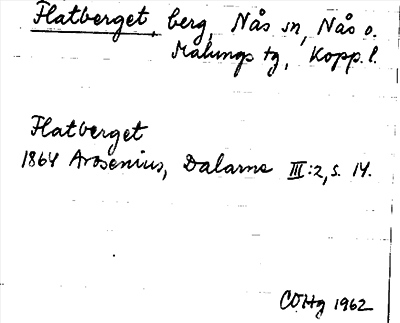 Flatberget, berg, Nås sn, Nås o.
Malungs tg, Kopp. l.
Flatberget
1864 Arosenius, Dalarne III:2, s. 14.
COHg 1962